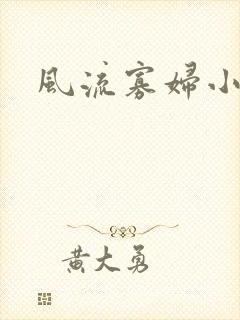 風流寡婦小
黃大勇